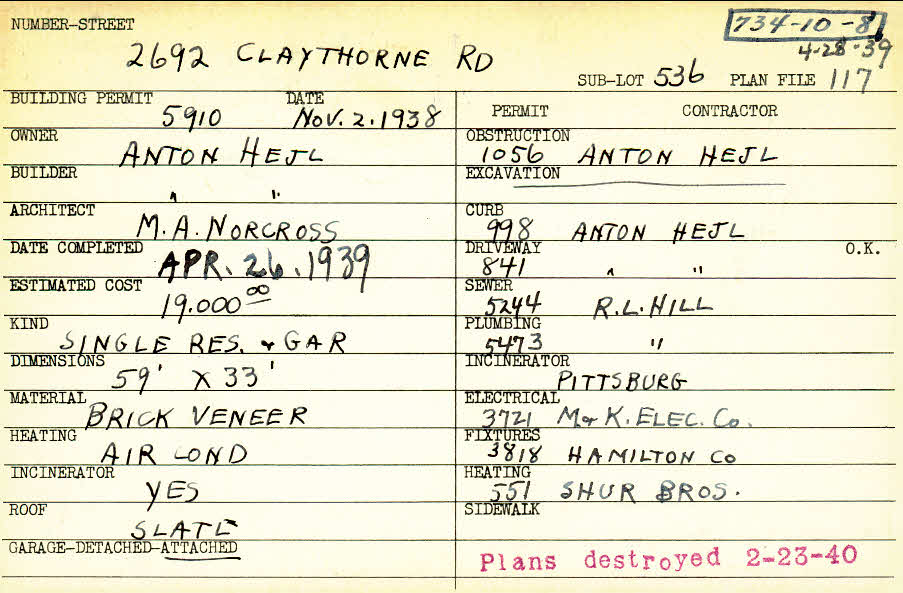 NUMBER-STREET
2692 CLAYTHORNE RD
734-10-8
4-28-39
SUB-LOT 536 PLAN FILE 117
BUILDING PERMIT DATE
5910 NOV. 2. 1938
OWNER
ANTON HEJL
BUILDER
" "
ARCHITECT
M. A. NORCROSS
DATE COMPLETED
APR. 26. 1939
ESTIMATED COST
19.000 00
KIND
SINGLE RES. & GAR
DIMENSIONS
59' X 33'
MATERIAL
BRICK VENEER
HEATING
AIR COND
INCINERATOR
YES
ROOF
SLATE
GARAGE-DETACHED-ATTACHED
PERMIT CONTRACTOR
OBSTRUCTION
1056 ANTON HEJL
EXCAVATION
CURB
998 ANTON HEJL
DRIVEWAY O.K.
841 " "
SEWER
5244 R.L. HILL
PLUMBING
5473 "
INCINERATOR
PITTSBURG
ELECTRICAL
3721 M & K. ELEC. Co.
FIXTURES
3818 HAMILTON Co
HEATING
551 SHUR BROS.
SIDEWALK
Plans destroyed 2-23-40